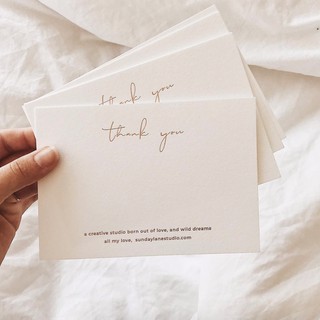 thank you
thank you
a creative studio born out of love, and wild dreams
all my love, sundaylanestudio.com